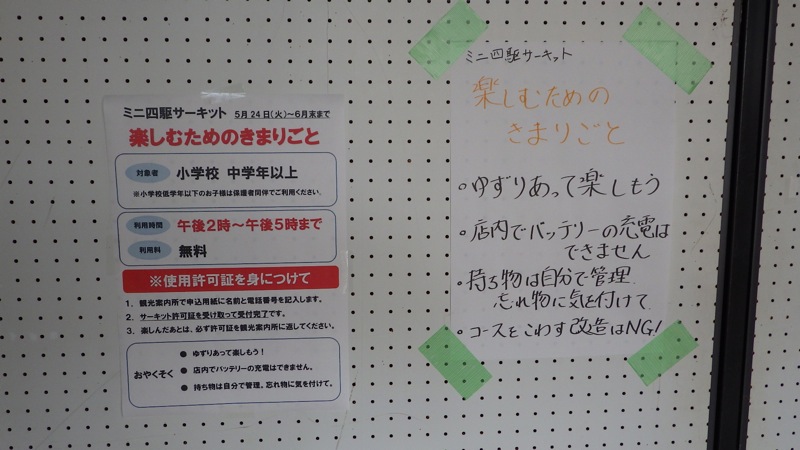 ミニ四駆サーキット 5月24日(火)～6月末まで
楽しむためのきまりごと
対象者 小学校 中学年以上
※小学校低学年以下のお子様は保護者同伴でご利用ください。
利用時間 午後2時～午後5時まで
利用料 無料
※使用許可証を身につけて
1、観光案内所で申込用紙に名前と電話番号を記入します。
2、サーキット許可証を受け取って受付完了です。
3、楽しんだあとは、必ず許可証を観光案内所に返してください。
おやくそく
● ゆずりあって楽しもう！
● 店内でバッテリーの充電はできません。
● 持ち物は自分で管理。忘れ物に気を付けて。
ミニ四駆サーキット
楽しむための
きまりごと
・ゆずりあって楽しもう
・店内でバッテリーの充電は
できません
・持ち物は自分で管理
忘れ物に気を付けて
・コースをこわす改造はNG!